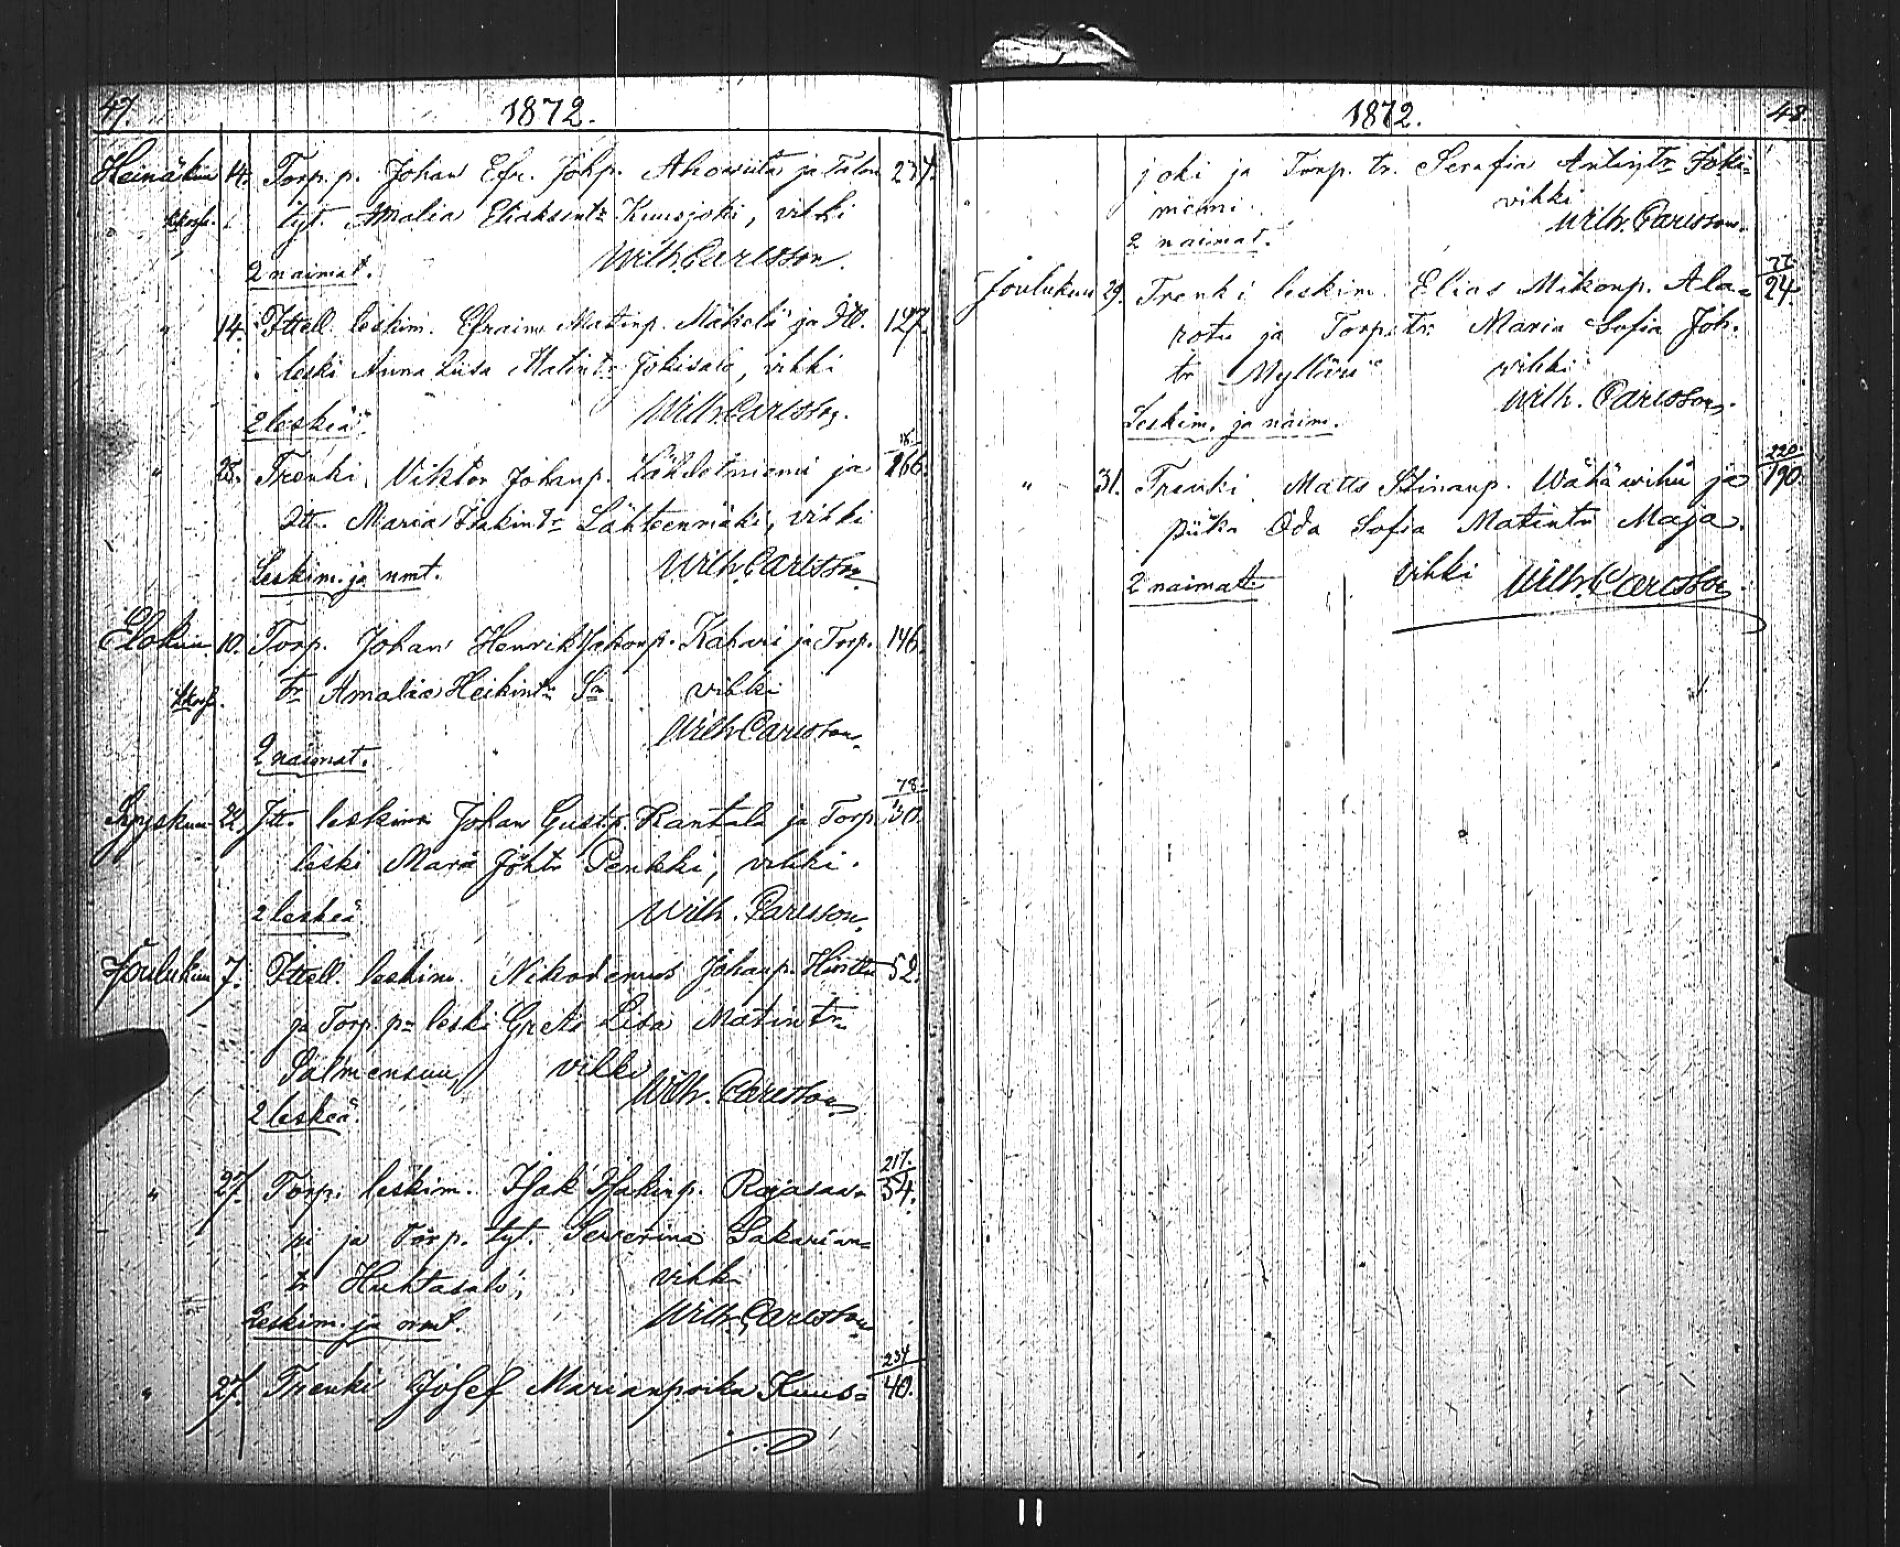 47.
1872.
Heinäkuu 14. Torp. p. Johan Efr. Johp. Ahosiita ja Talon 237.
tyt. Amalia Eliaksentr Kuusjoki, vihki
2 naimat. Wilh. Carlsson.
" 14. Ittell. leskim. Efraim Matinp. Mäkelä ja Itt. 127.
leski Anna Liisa Matintr Jokisalo, vihki
2 leskeä. Wilh. Carlsson.
" 25. Trenki Viktor Johanp. Lähdetniemi ja 166.
Itt. Maria Isakintr Lähteenmäki, vihki
Leskim. ja nmt. Wilh. Carlsson
Elokuu 10. Torp. Johan Henrik Jakonp. Kahari ja Torp. 146
tr Amalia Heikintr Sa. vihki
Wilh. Carlsson.
2 naimat.
78
Syyskuu 22. Itt. leskim Johan Gust.p. Rantala ja Torp.
leski Maria Johtr Penkki, vihki.
2 leskeä. Wilh. Carlsson.
Joulukuu 7. Ittell. leskim. Nikodemus Johanp. Hiritta 52.
ja Torp. pn leski Greta Lisa Matintr
Salmensuu, vihki
Wilh. Carlsson
2 leskeä.
217.
" 27. Torp. leskim. Isak Isakinp. Rajasaa= 54.
pi ja Torp. tyt. Severina Sakarian=
tr Huhtasalo, vihki
Leskim. ja nmt. Wilh. Carlsson
234
" 27. Trenki Josef Marianpoika Kuus= 40.
1872.
48.
joki ja Torp. tr. Serafia Antintr Joki=
niemi. vihki
2 naimat. Wilh. Carlsson.
77
Joulukuu 29. Trenki leskim. Elias Mikonp. Ala= 24.
rotu ja Torp. tr. Maria Sofia Joh.
tr Mylläri vihki
Wilh. Carlsson.
Leskim. ja naim.
220
" 31. Trenki Matts Stinanp. Wähäwihu ja 190.
piika Eda Sofia Matintr Maja.
2 naimat. Vihki Wilh. Carlsson